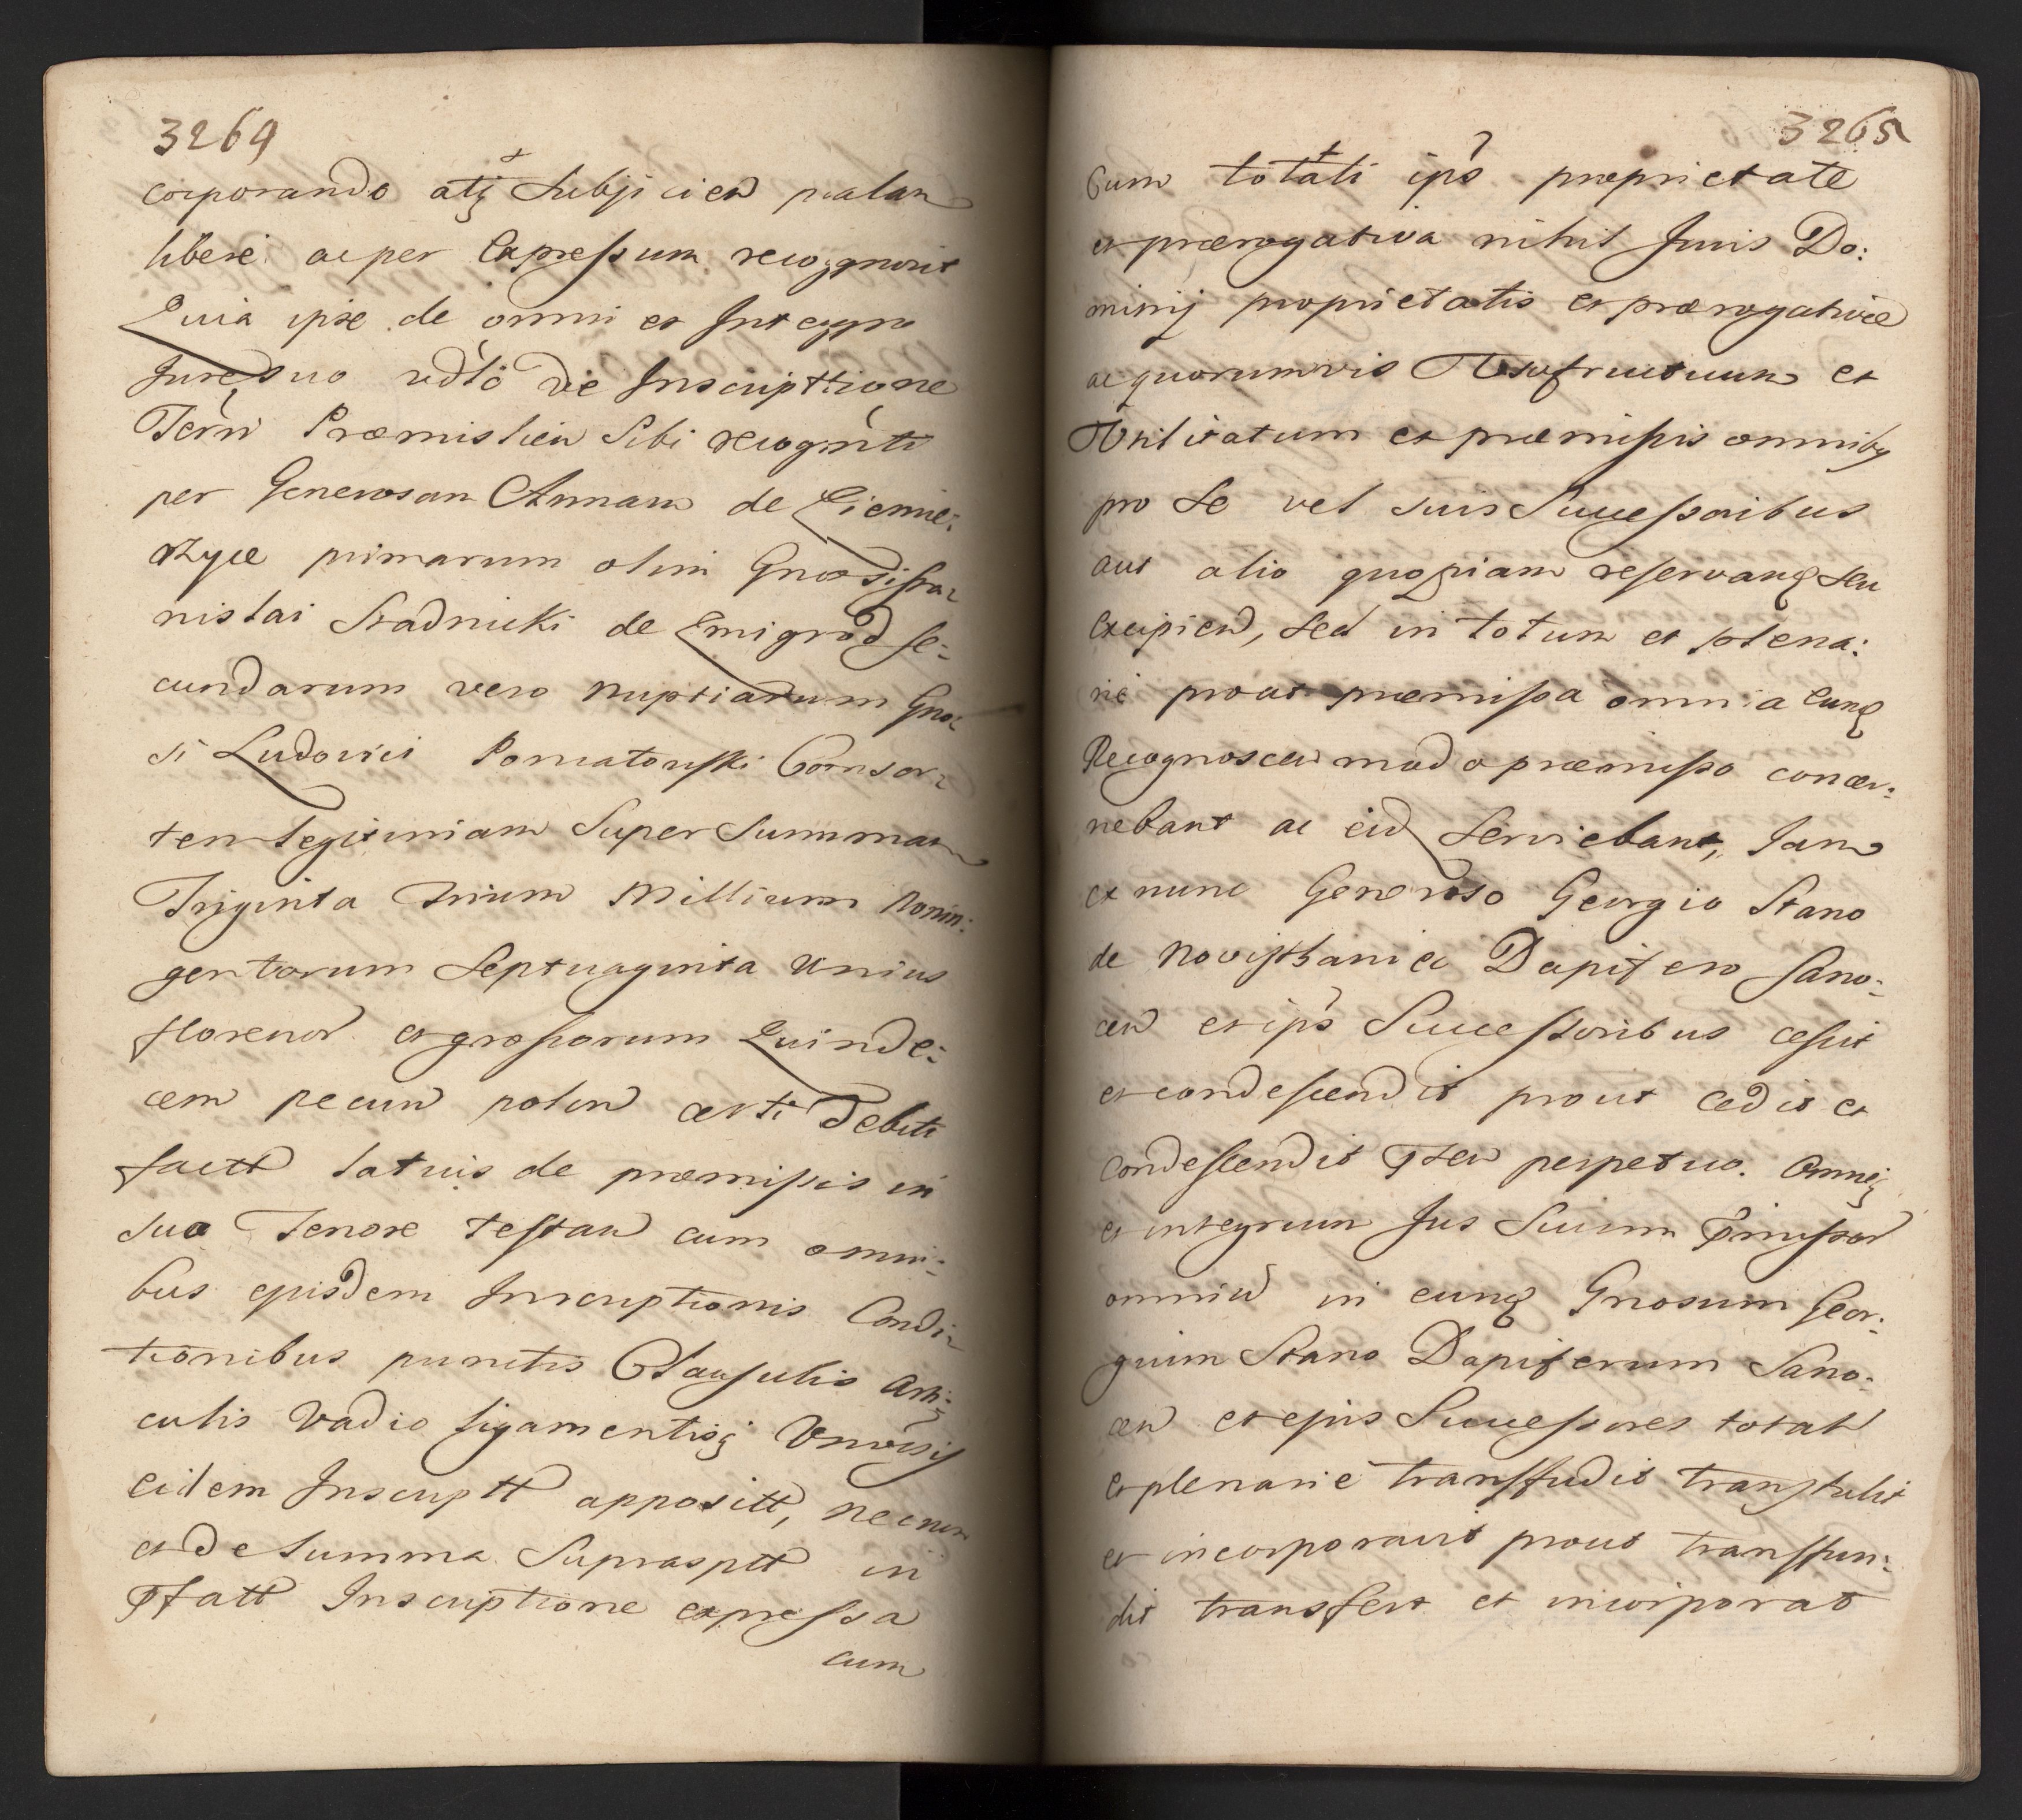 3264
corporando atq Subjicien palam
libere ac per Expressum recognovit
Quia ipse de omni et Integro
Jure suo vdto de Inscripttione
Terrn Præmislien Sibi recognti
per Generosam Annam de
primarum olim Gnosi Sta-
nislai Stadnicki de Zmigrod se-
cundarum vero nuptiarum Gno-
si Ludovici Poniatowski Consor-
tem legitimam Super Summam
Triginta Trium Millium Nonin-
gentorum Septuaginta Unius
florenor et grossorum Quinde-
cem pecun polon certi Debiti
factt latius de præmissis in
suo Tenore testan cum omni-
bus ejusdem Inscriptionis Condi-
tionibus punctis Clausulis Arti-
culis Vadio ligamentisq
eidem Inscriptt appositt, necnon
et de Summa Suprasptt in
Pfatt Inscriptione expressa
cum
3265
Cum totali ips proprietate
et prærogativa nihil Juris Do:
minij proprietatis et prærogativæ
ac quorumvis Usufructuum et
Utilitatum ex præmissis omnibq
pro Se vel suis Successoribus
aut alio quopiam reservan seu
Excipien, sed in totum et plena:
rie prout præmissa omnia eund
Recognoscen modo præmisso concer:
nebant ac eid Serviebant, Jam
ex nunc Generoso Georgio Stano
de Nowijthaniec Dapifero Sano:
cen et ips Successoribus cessit
et condescendit prout cedit et
condescendit Psen perpetuo. Omneq
et integrum Jus Suum Pmissor
omniu in eund Gnosum Geor:
gium Stano Dapiferum Sano:
cen et ejus Successores totalr
et plenarie transffudit transtulit
et incorporavit prout transffun:
dit transfert et incorporat